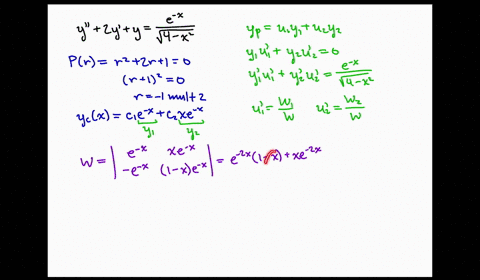 y'' + 2y' + y = e^{-x}/√(4-x²)
P(r) = r² + 2r + 1 = 0
(r+1)² = 0
r = -1 mult 2
y_c(x) = c₁e^{-x} + c₂xe^{-x}
y₁ y₂
y_p = u₁y₁ + u₂y₂
y₁u₁' + y₂u₂' = 0
y₁'u₁' + y₂'u₂' = e^{-x}/√(4-x²)
u₁' = W₁/W u₂' = W₂/W
W = | e^{-x} xe^{-x} |
| -e^{-x} (1-x)e^{-x} | = e^{-2x}(1-x) + xe^{-2x}